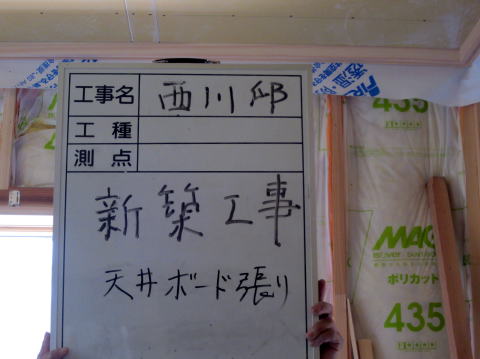 工事名 西川邸
工種
測点
新築工事
天井ボード張り
435
MAG
ポリカット
435